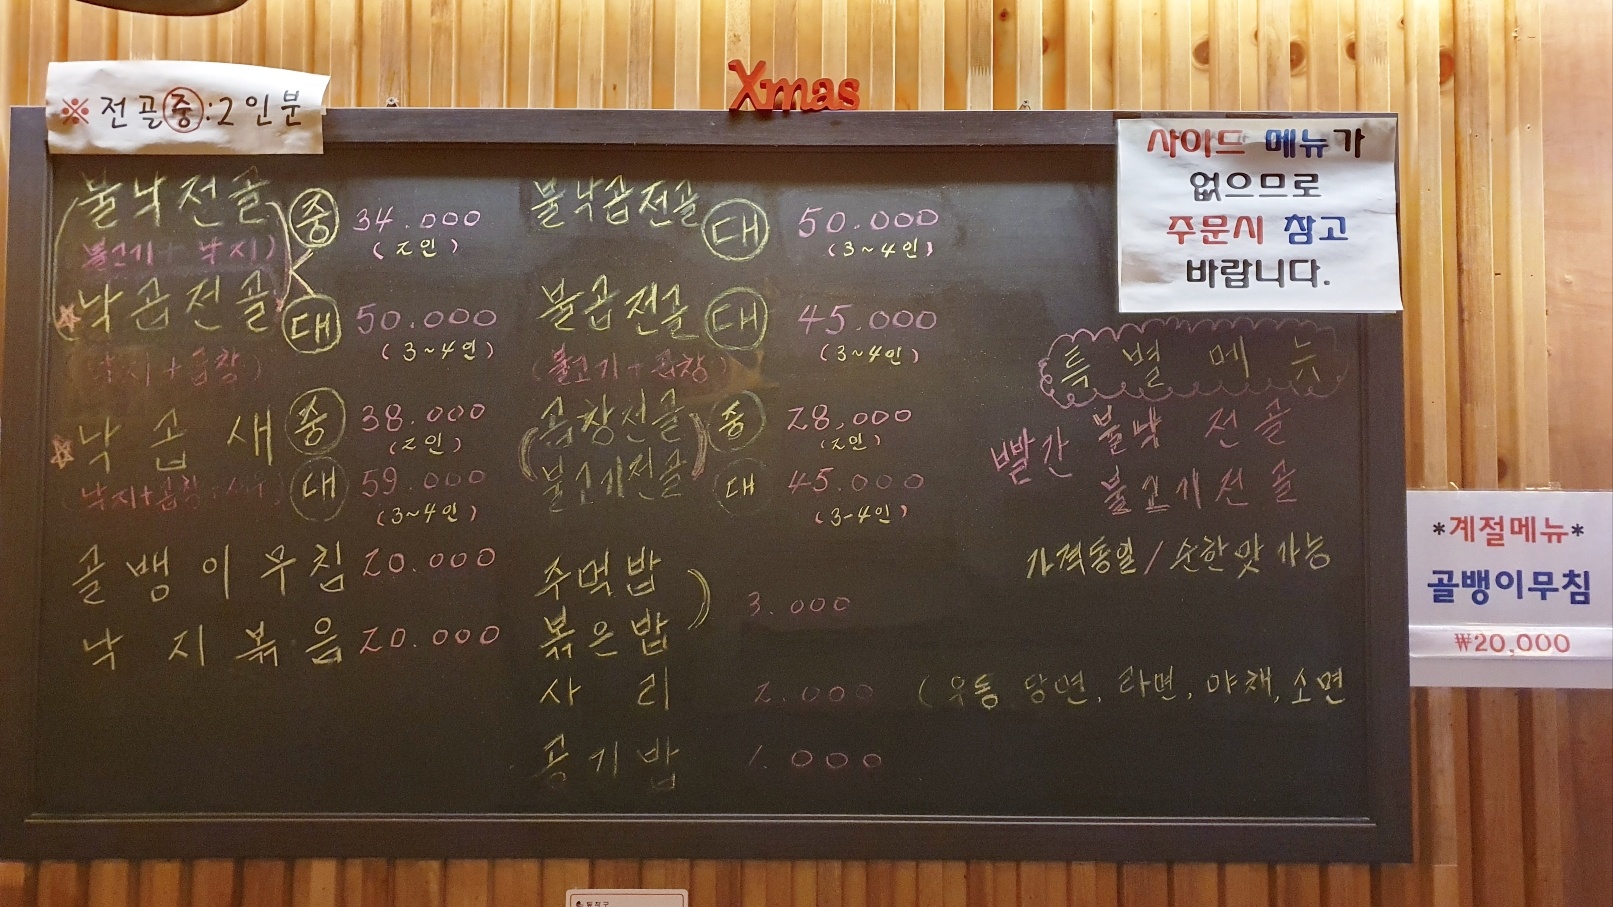 ※전골㊥:2인분
Xmas
사이드 메뉴가
없으므로
주문시 참고
바랍니다.
불낙전골 중 34.000
(불고기+낙지) (2인)
낙곱전골 대 50.000
(낙지+곱창) (3~4인)
낙곱새 중 38.000
(2인)
(낙지+곱창+새우) 대 59.000
(3~4인)
골뱅이무침 20.000
낙지볶음 20.000
불낙곱전골 대 50.000
(3~4인)
불곱전골 대 45.000
(불고기+곱창) (3~4인)
곱창전골 중 28,000
(2인)
불고기전골 대 45.000
(3-4인)
주먹밥
볶은밥 3.000
사리 2.000 (우동, 당면, 라면, 야채, 소면
공기밥 1.000
특별메뉴
빨간 불낙 전골
불고기전골
가격동일/순한맛 가능
*계절메뉴*
골뱅이무침
₩20,000